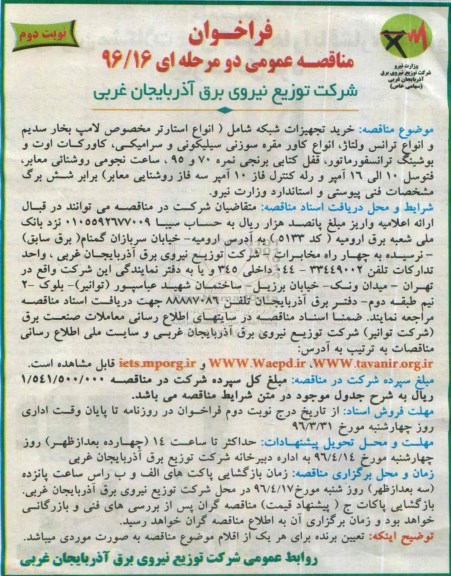 نوبت دوم
فراخوان
مناقصه عمومی دو مرحله ای ۹۶/۱۶
شرکت توزیع نیروی برق آذربایجان غربی
وزارت نیرو
شرکت توزیع نیروی برق
آذربایجان غربی
(سهامی خاص)
موضوع مناقصه: خرید تجهیزات شبکه شامل ( انواع استارتر مخصوص لامپ بخار سدیم
و انواع ترانس ولتاژ، انواع کاور مقره سوزنی سیلیکونی و سرامیکی، کاورکات اوت و
بوشینگ ترانسفورماتور، قفل کتابی برنجی نمره ۷۰ و ۹۵ ، ساعت نجومی روشنائی معابر،
فتوسل ۱۰ الی ۱۶ آمپر و رله کنترل فاز ۱۰ آمپر سه فاز روشنایی معابر) برابر شش برگ
مشخصات فنی پیوستی و استاندارد وزارت نیرو.
شرایط و محل دریافت اسناد مناقصه: متقاضیان شرکت در مناقصه می توانند در قبال
ارائه اعلامیه واریز مبلغ پانصد هزار ریال به حساب سیبا ۰۱۰۵۵۹۲۶۷۷۰۰۹ نزد بانک
ملی شعبه برق ارومیه ( کد ۵۱۳۳ ) به آدرس ارومیه- خیابان سربازان گمنام( برق سابق)
- نرسیده به چهار راه مخابرات - شرکت توزیع نیروی برق آذربایجان غربی ، واحد
تدارکات تلفن ۳۳۴۴۹۰۰۲ - ۰۴۴ داخلی ۳۴۵ و یا به دفتر نمایندگی این شرکت واقع در
تهران - میدان ونک- خیابان برزیل- ساختمان شهید عباسپور (توانیر)- بلوک -۲
نیم طبقه دوم- دفتر برق آذربایجان تلفن ۸۸۸۸۷۰۸۶ جهت دریافت اسناد مناقصه
مراجعه نمایند. ضمنا اسناد مناقصه در سایتهای اطلاع رسانی معاملات صنعت برق
(شرکت توانیر) شرکت توزیع نیروی برق آذربایجان غربی و سایت ملی اطلاع رسانی
مناقصات به ترتیب به آدرس:
WWW.tavanir.org.ir، WWW.Waepd.ir و iets.mporg.ir قابل مشاهده است.
مبلغ سپرده شرکت در مناقصه: مبلغ کل سپرده شرکت در مناقصه ۱/۵۴۱/۵۰۰/۰۰۰
ریال به شرح جدول موجود در متن شرایط مناقصه می باشد.
مهلت فروش اسناد: از تاریخ درج نوبت دوم فراخوان در روزنامه تا پایان وقت اداری
روز چهارشنبه مورخ ۹۶/۳/۳۱
مهلت و محل تحویل پیشنهادات: حداکثر تا ساعت ۱۴ (چهارده بعدازظهر) روز
چهارشنبه مورخ ۹۶/۴/۱۴ به اداره دبیرخانه شرکت توزیع برق آذربایجان غربی
زمان و محل برگزاری مناقصه: زمان بازگشایی پاکت های الف و ب راس ساعت پانزده
(سه بعدازظهر) روز شنبه مورخ ۹۶/۴/۱۷ در محل شرکت توزیع نیروی برق آذربایجان غربی.
بازگشایی پاکات ج ( پیشنهاد قیمت) مناقصه گران پس از بررسی های فنی و بازرگانی
خواهد بود و زمان برگزاری آن به اطلاع مناقصه گران خواهد رسید.
توضیح اینکه: تعیین برنده برای هر یک از اقلام موضوع مناقصه به صورت موردی میباشد.
روابط عمومی شرکت توزیع نیروی برق آذربایجان غربی